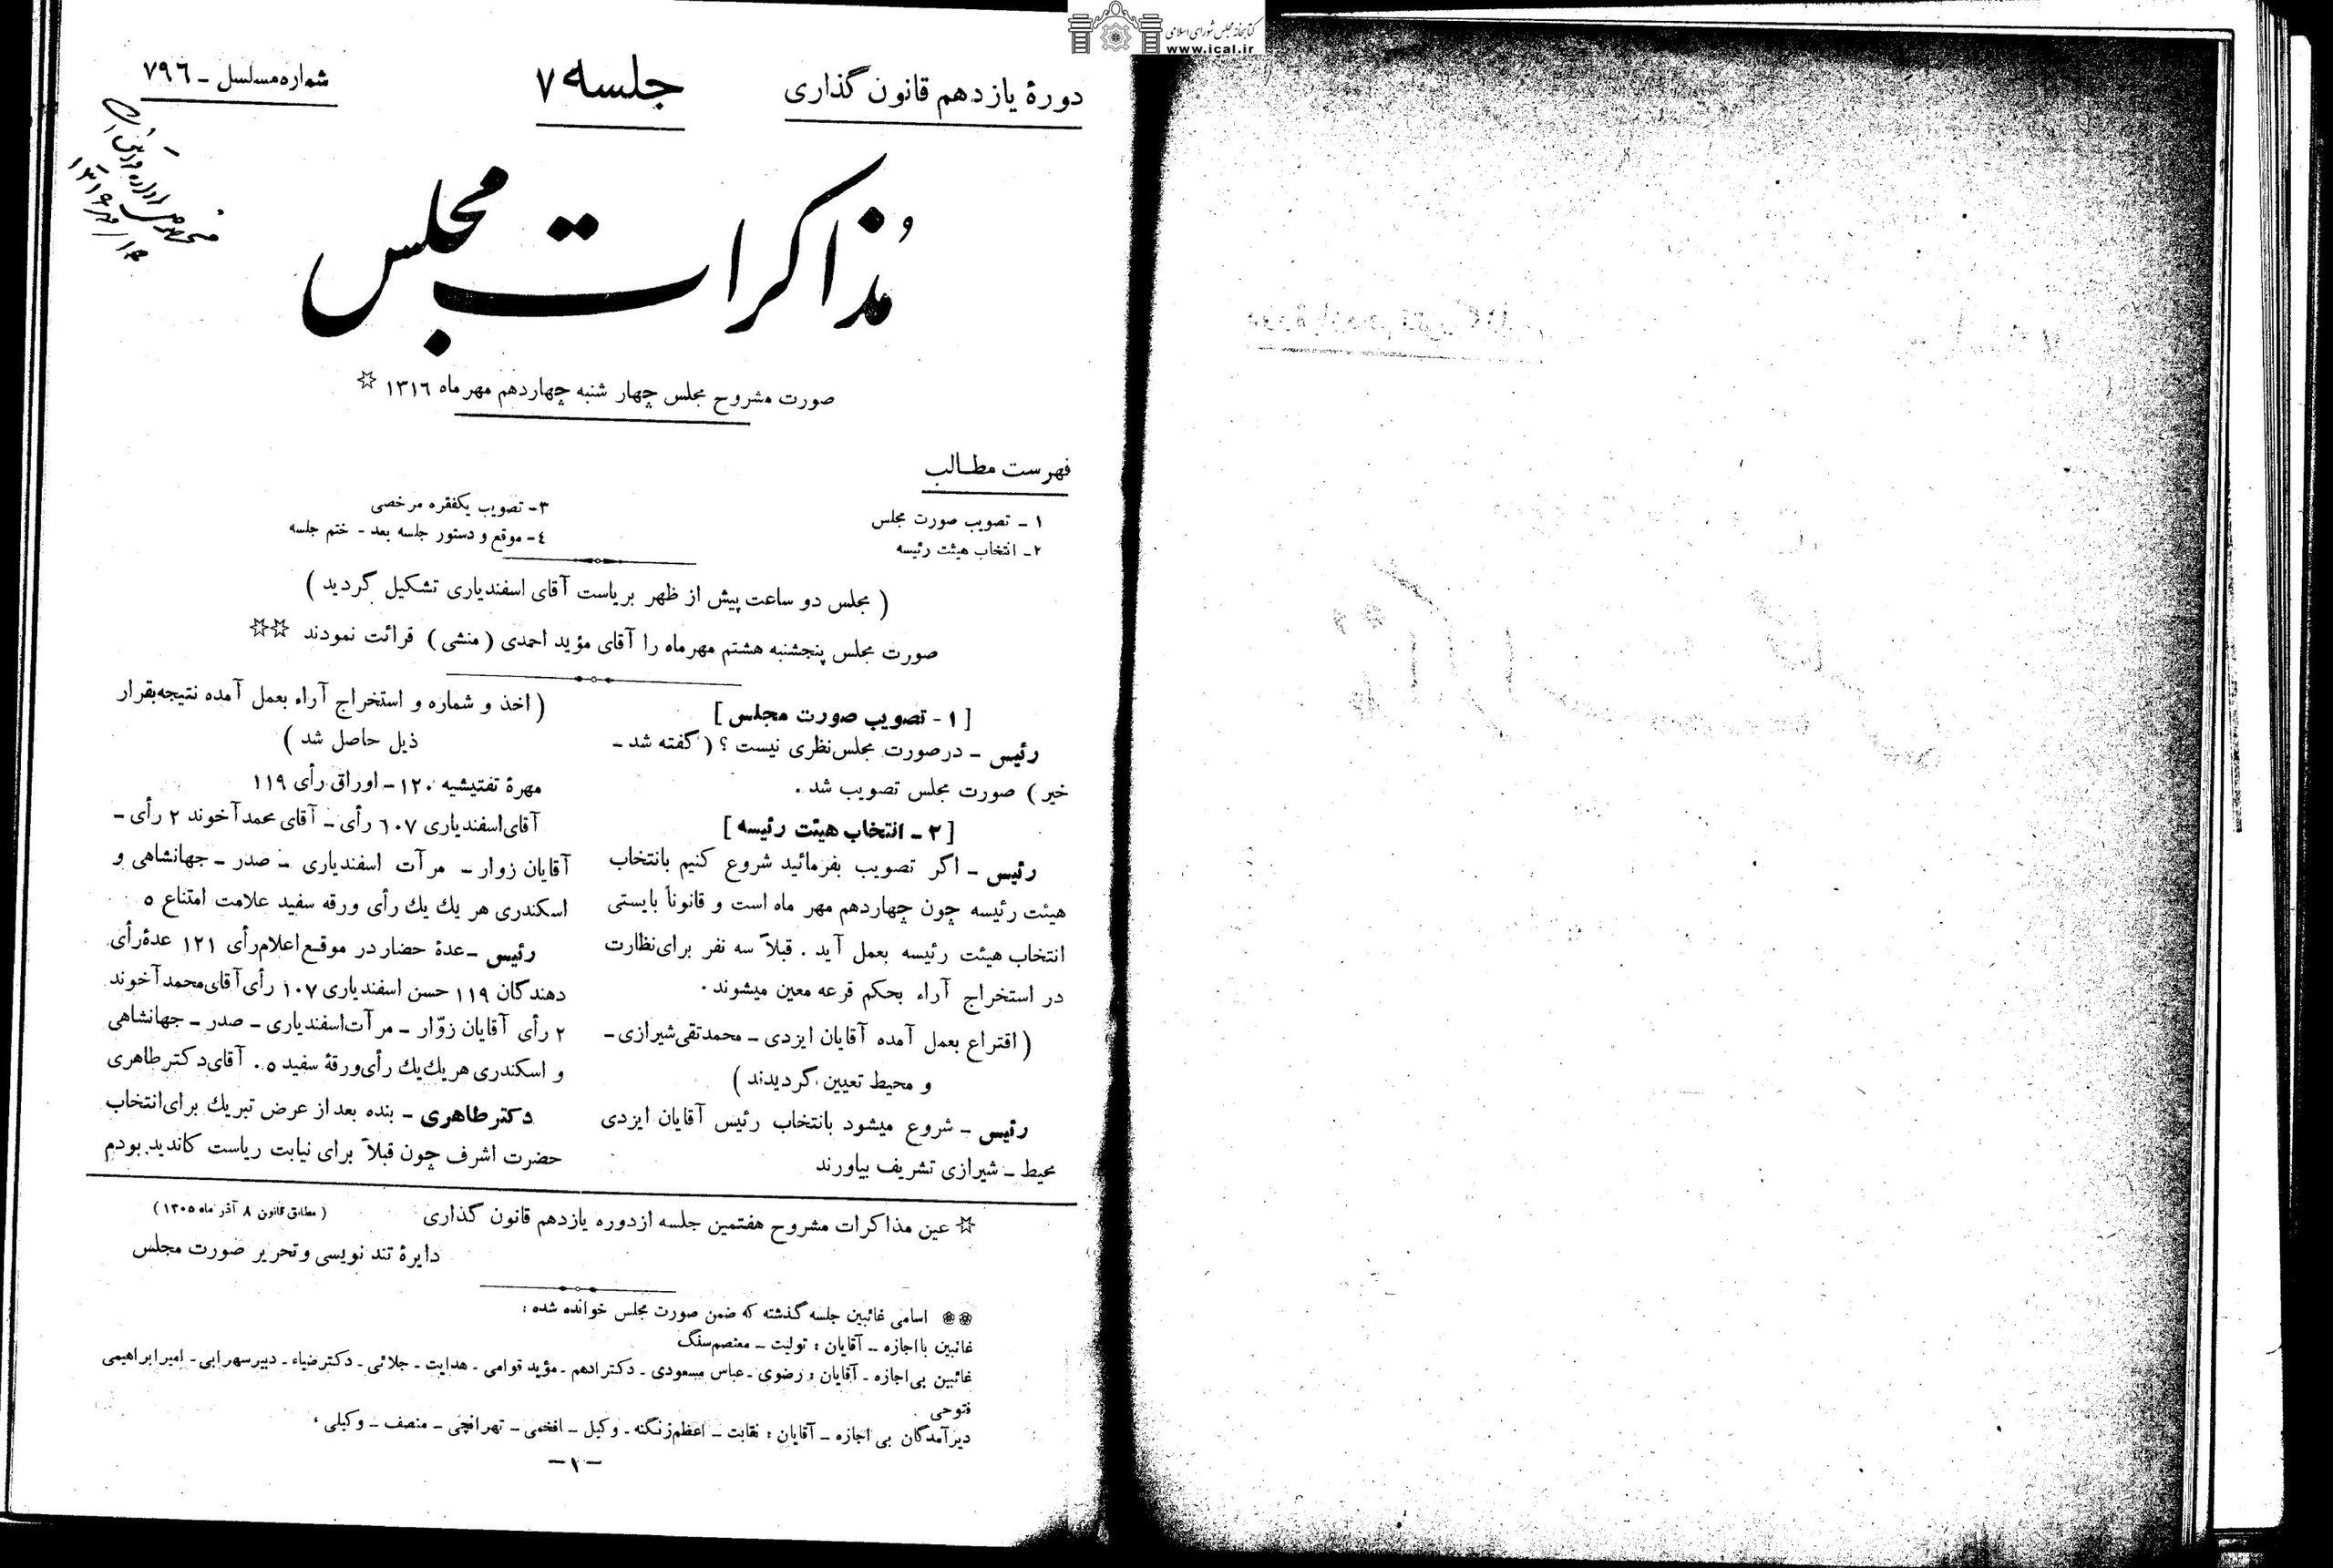 کتابخانه مجلس شورای اسلامی
www.ical.ir
دورهٔ یازدهم قانون گذاری
جلسه ۷
شماره مسلسل ـ ۷۹٦
مُذاکرات مجلس
صورت مشروح مجلس چهار شنبه چهاردهم مهر ماه ۱۳۱٦ ☆
فهرست مطالب
۱ ـ تصویب صورت مجلس
۲ـ انتخاب هیئت رئیسه
۳- تصویب یکفقره مرخصی
٤- موقع و دستور جلسه بعد - ختم جلسه
( مجلس دو ساعت پیش از ظهر بریاست آقای اسفندیاری تشکیل گردید )
صورت مجلس پنجشنبه هشتم مهرماه را آقای مؤید احمدی ( منشی ) قرائت نمودند ☆☆
[ ۱ - تصویب صورت مجلس ]
رئیس ـ درصورت مجلس نظری نیست ؟ ( گفته شد ـ
خیر ) صورت مجلس تصویب شد .
[ ۲ ـ انتخاب هیئت رئیسه ]
رئیس ـ اگر تصویب بفرمائید شروع کنیم بانتخاب
هیئت رئیسه چون چهاردهم مهر ماه است و قانوناً بایستی
انتخاب هیئت رئیسه بعمل آید . قبلاً سه نفر برای نظارت
در استخراج آراء بحکم قرعه معین میشوند .
( اقتراع بعمل آمده آقایان ایزدی ـ محمدتقی شیرازی ـ
و محیط تعیین گردیدند )
رئیس ـ شروع میشود بانتخاب رئیس آقایان ایزدی
محیط ـ شیرازی تشریف بیاورند
( اخذ و شماره و استخراج آراء بعمل آمده نتیجه بقرار
ذیل حاصل شد )
مهرهٔ تفتیشیه ۱۲۰ ـ اوراق رأی ۱۱۹
آقای اسفندیاری ۱۰۷ رأی ـ آقای محمد آخوند ۲ رأی ـ
آقایان زوار ـ مرآت اسفندیاری ـ صدر ـ جهانشاهی و
اسکندری هر یك یك رأی ورقه سفید علامت امتناع ۵
رئیس ـ عدهٔ حضار در موقع اعلام رأی ۱۲۱ عدهٔ رأی
دهندگان ۱۱۹ حسن اسفندیاری ۱۰۷ رأی آقای محمد آخوند
۲ رأی آقایان زوّار ـ مرآت اسفندیاری ـ صدر ـ جهانشاهی
و اسکندری هر یك یك رأی ورقهٔ سفید ۵ . آقای دکتر طاهری
دکتر طاهری ـ بنده بعد از عرض تبریك برای انتخاب
حضرت اشرف چون قبلاً برای نیابت ریاست کاندید بودم
☆ عین مذاکرات مشروح هفتمین جلسه از دوره یازدهم قانون گذاری
( مطابق قانون ۸ آذر ماه ۱۳۰۵ )
دایرهٔ تند نویسی و تحریر صورت مجلس
❀❀ اسامی غائبین جلسه گذشته که ضمن صورت مجلس خوانده شده :
غائبین با اجازه ـ آقایان : تولیت ـ معتصم سنگ
غائبین بی اجازه ـ آقایان : رضوی ـ عباس مسعودی ـ دکتر ادهم ـ مؤید قوامی ـ هدایت ـ جلائی ـ دکتر ضیاء ـ دبیر سهرابی ـ امیر ابراهیمی
فتوحی
دیرآمدگان بی اجازه ـ آقایان : نقابت ـ اعظم زنگنه ـ وکیل ـ افخمی ـ تهرانچی ـ منصف ـ وکیلی ،
ـ ۱ ـ